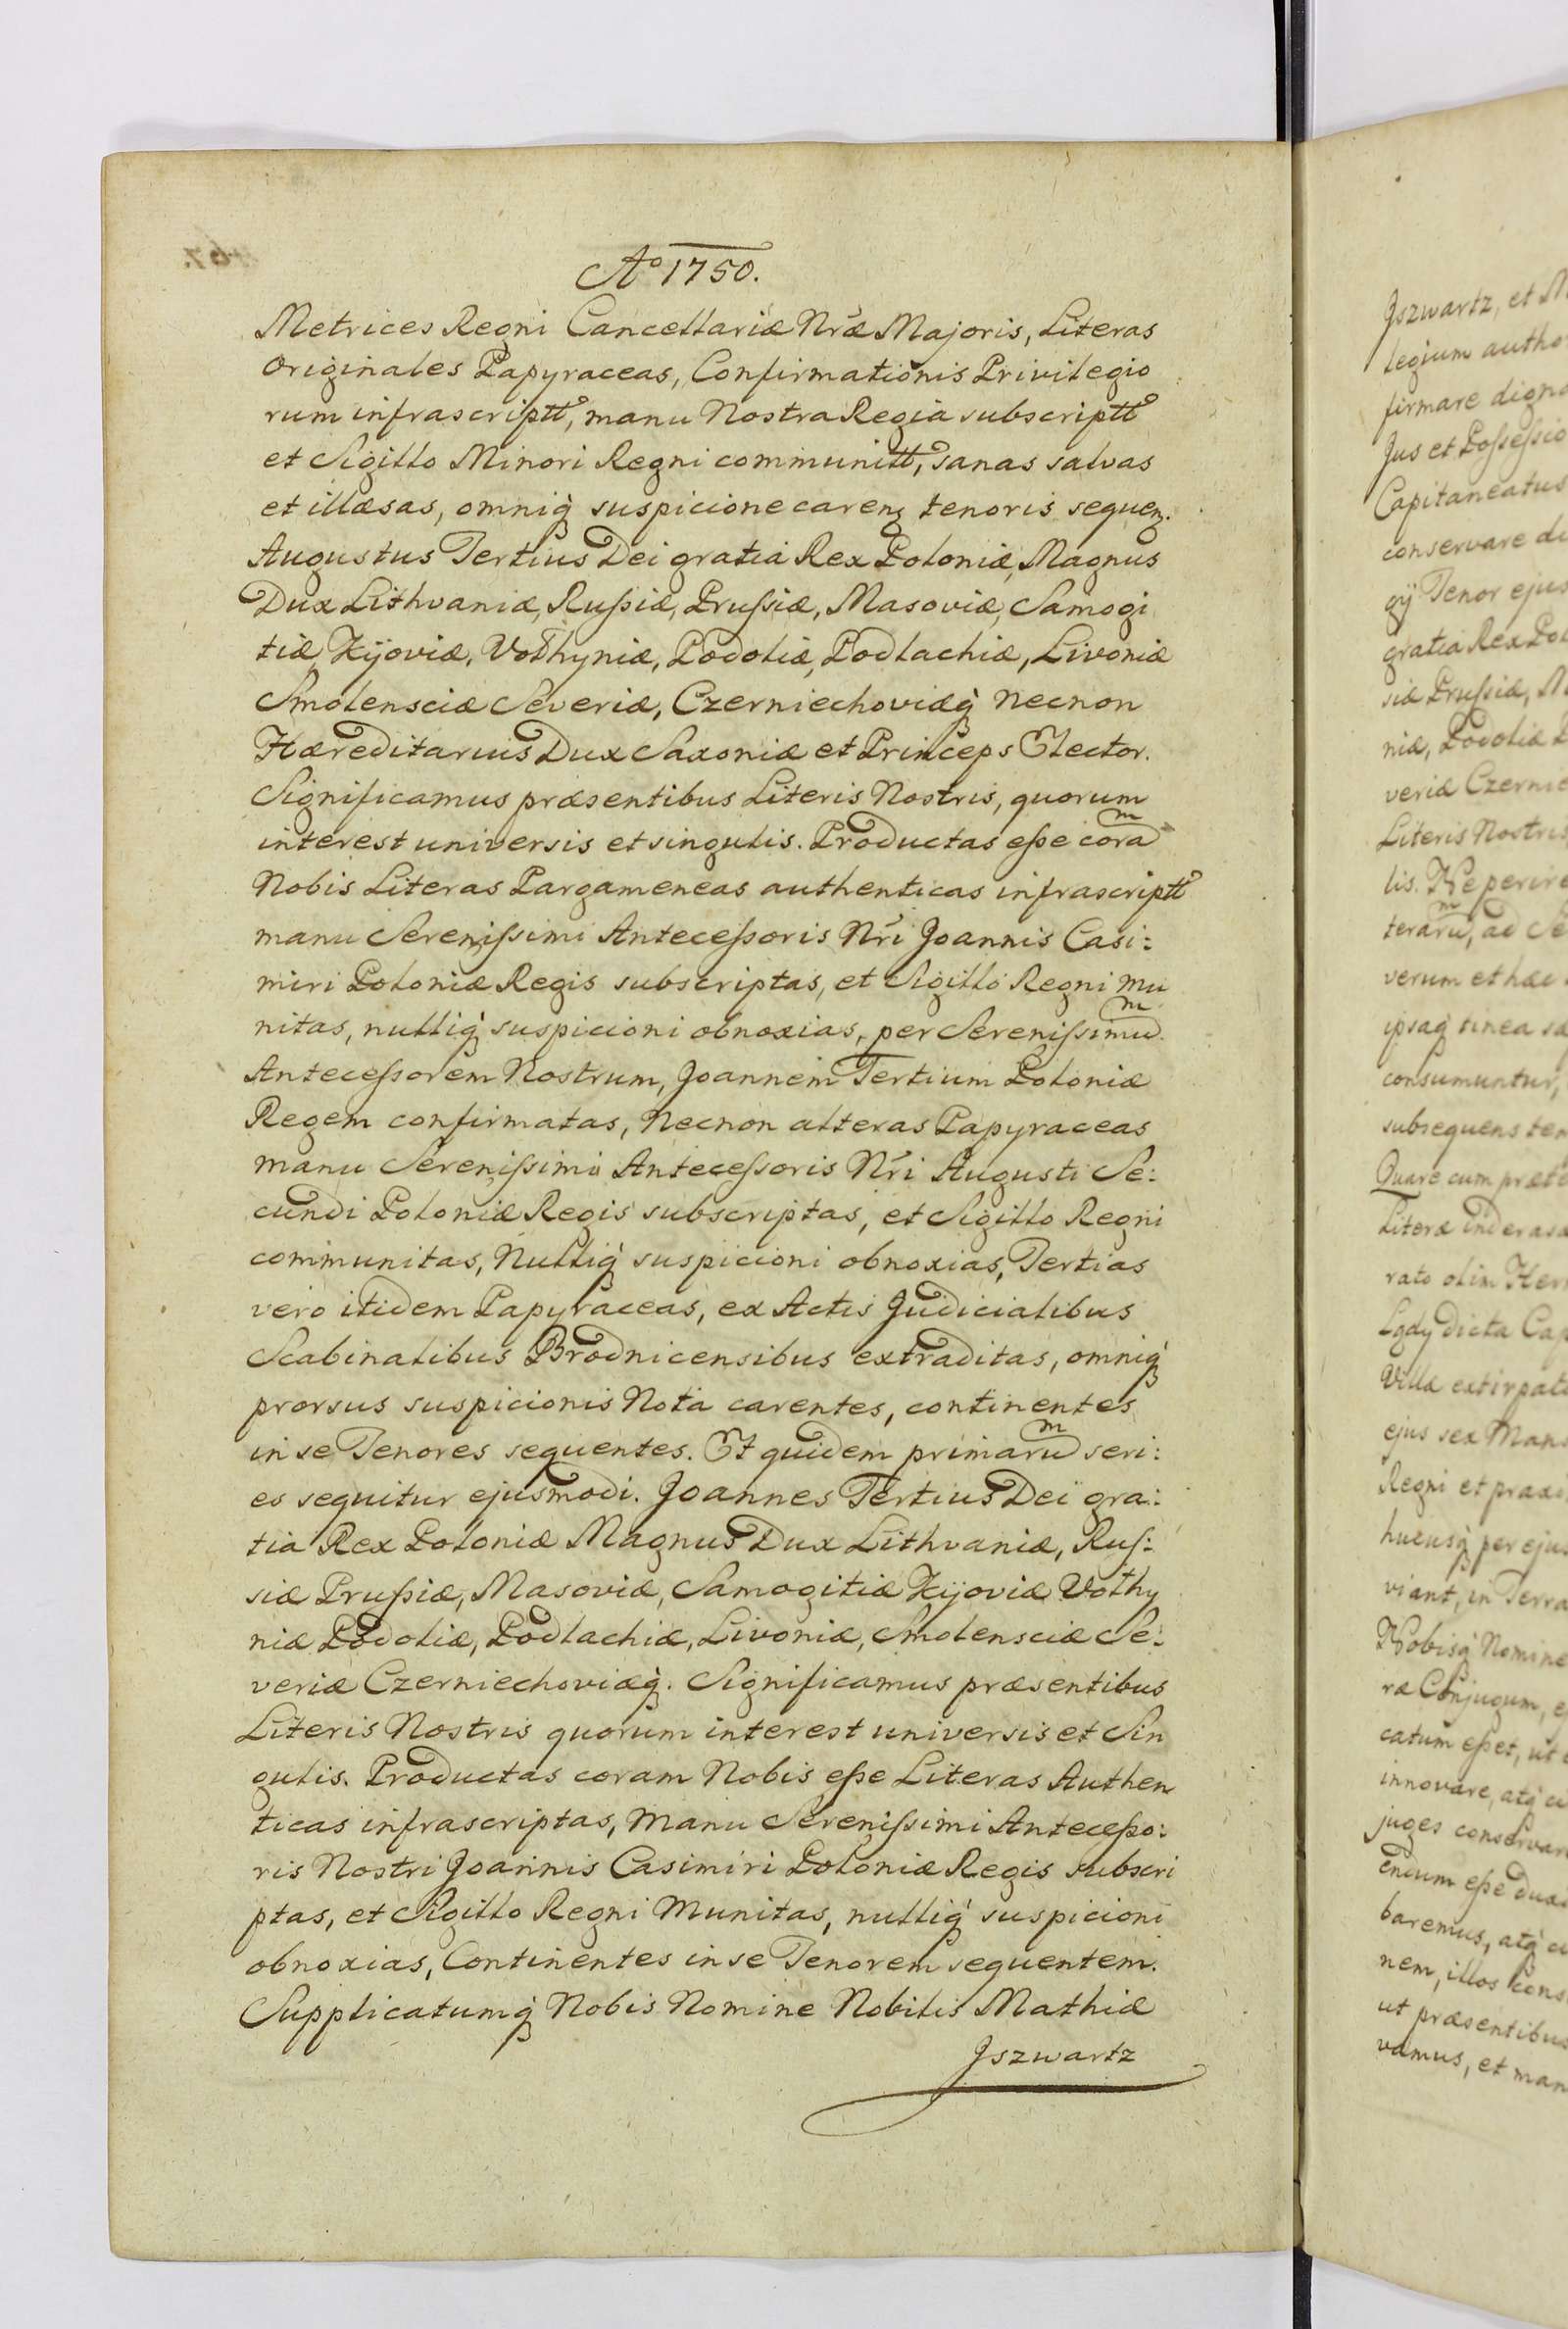 Aº 1750.
Metrices Regni Cancellariæ Nræ Majoris, Literas
Originales Papyraceas, Confirmationis Privilegio
rum infrascriptt, manu Nostra Regia subscriptt
et Sigillo Minori Regni communitt, sanas salvas
et illæsas, omniq̀ suspicione carenz tenoris sequenz.
Augustus Tertius Dei gratia Rex Poloniæ, Magnus
Dux Lithvaniæ, Rußiæ, Prußiæ, Masoviæ, Samogi
tiæ, Kijoviæ, Volhyniæ, Podoliæ, Podlachiæ, Livoniæ
Smolensciæ Severiæ, Czerniechoviæq̀ Necnon
Hæreditarius Dux Saxoniæ et Princeps Elector.
Significamus præsentibus Literis Nostris, quorum
interest universis et singulis. Productas eße coram
Nobis Literas Pargameneas authenticas infrascriptt
manu Sereniſsimi Anteceſsoris Nri Joannis Casi:
miri Poloniæ Regis subscriptas, et Sigillo Regni mu
nitas, nulliq̀ suspicioni obnoxias, per Sereniſsimum
Anteceſsorem Nostrum, Joannem Tertium Poloniæ
Regem confirmatas, Necnon alteras Papyraceas
manu Sereniſsimi Anteceſsoris Nri Augusti Se:
cundi Poloniæ Regis subscriptas, et Sigillo Regni
communitas, Nulliq̀ suspicioni obnoxias, Tertias
vero itidem Papyraceas, ex Actis Judicialibus
Scabinalibus Brodnicensibus extraditas, omniq̀
prorsus suspicionis Nota carentes, continentes
in se Tenores sequentes. Et quidem primarum seri:
es sequitur ejusmodi. Joannes Tertius Dei gra:
tia Rex Poloniæ Magnus Dux Lithvaniæ, Ruſ:
siæ Prußiæ, Masoviæ, Samogitiæ Kijoviæ Volhy
niæ Podoliæ, Podlachiæ, Livoniæ, Smolensciæ Se:
veriæ Czerniechoviæq̀. Significamus præsentibus
Literis Nostris quorum interest universis et Sin
gulis. Productas coram Nobis eße Literas Authen
ticas infrascriptas, Manu Sereniſsimi Anteceßo:
ris Nostri Joannis Casimiri Poloniæ Regis subscri
ptas, et Sigillo Regni Munitas, nulliq̀ suspicioni
obnoxias, Continentes in se Tenorem sequentem.
Supplicatumq̀ Nobis Nomine Nobilis Mathiæ
Jszwartz
Jszwartz, et
legium
firmare
Jus et Poſseſsio
Capitaneatus
conservare
gij Tenor ejus
gratia Rex
siæ Prußiæ,
niæ, Podoliæ
veriæ
Literis Nostris
lis. Ne perire
terarum, ad
verum et hæc
ipsaq̀ tinea
consumuntur,
subsequens
Quare cum
Literæ
rato olim
Lqdy dicta
Villæ
ejus sex
Regni et
hucusq̀ per
viant, in
Nobisq̀ Nomine
ræ Conjugum,
catum eßet, ut
innovare, atq̀
juges
endum eße
baremus, atq̀
nem, illos
ut præsentibus
vamus, et